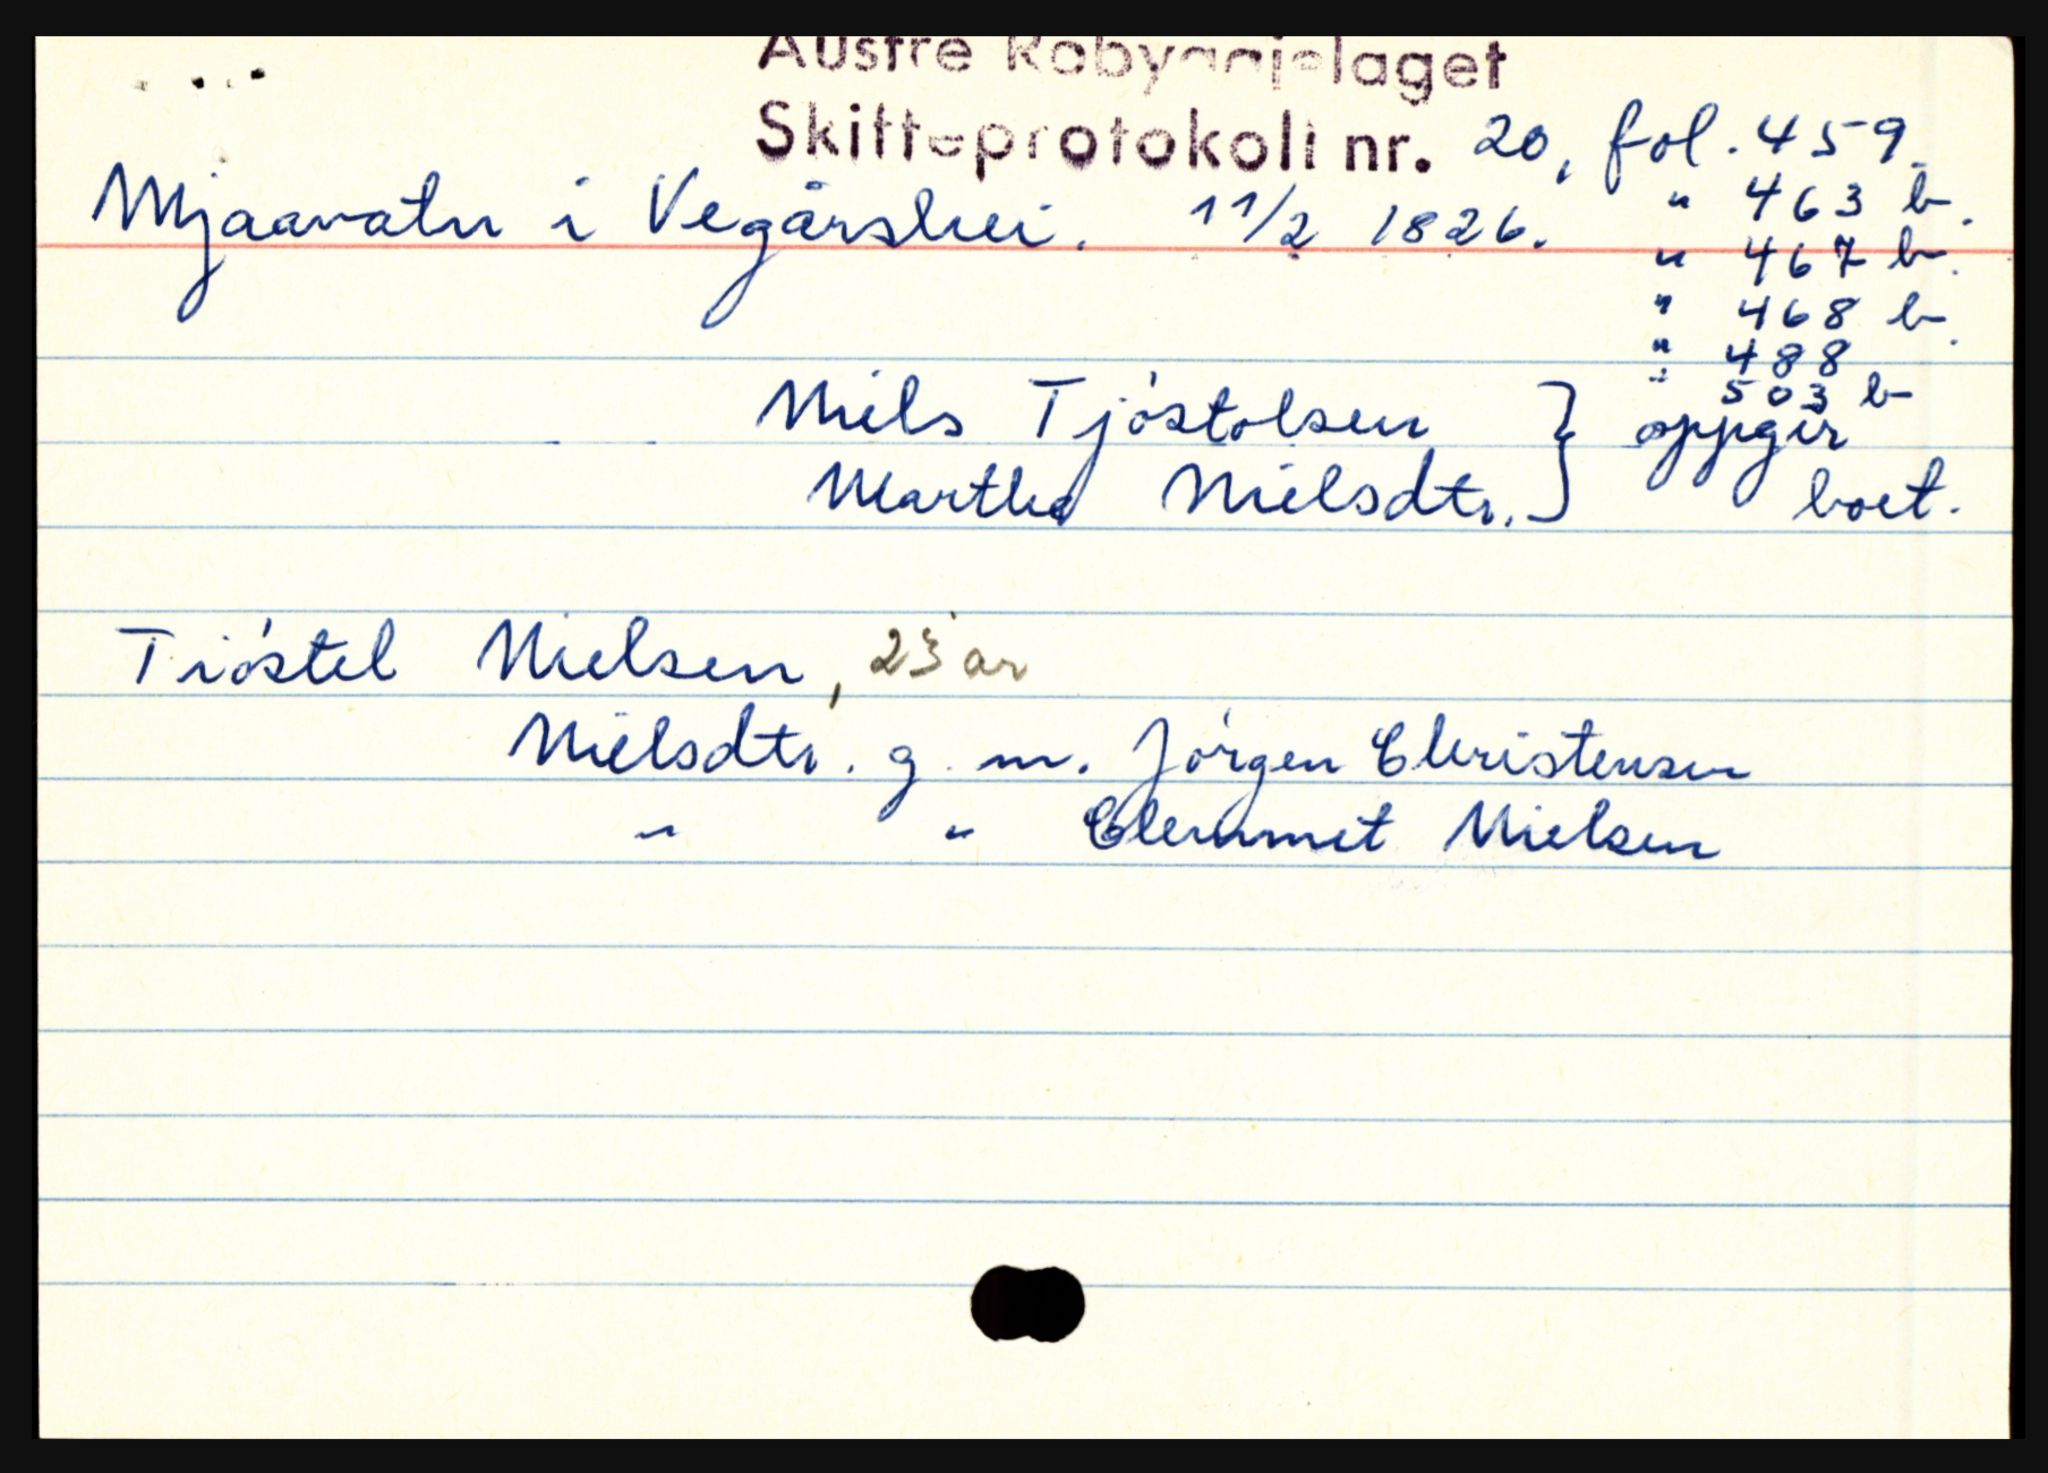 Austre Robyggjelaget
Skifteprotokoll nr. 20, fol. 459.
Mjaavatn i Vegårshei. 11/2 1826. " 463 b.
" 467 b.
" 468 b.
" 488
" 503 b
Niels Tjöstolsen } oppgir
Martha Nielsdtr. } boet.
Tiöstel Nielsen, 23 år
Nielsdtr. g. m. Jörgen Christensen
" " Clemmet Nielsen